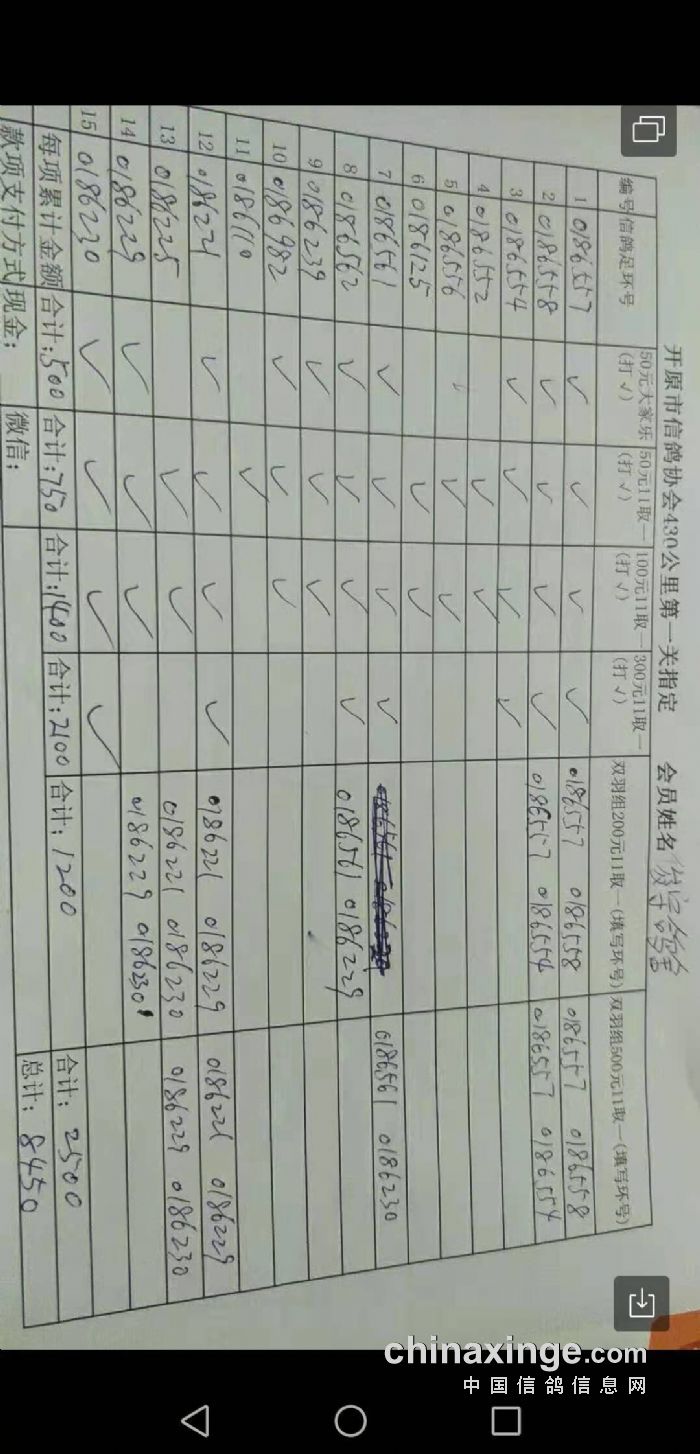 开原市信鸽协会430公里第一关指定 会员姓名
编号 信鸽足环号 50元大家乐(打√) 50元11取一(打√) 100元11取一(打√) 300元11取一(打√) 双羽组200元11取一(填写环号) 双羽组500元11取一(填写环号)
1 0186557 √ √ √ √ 0186557 0186558 0186557 0186558
2 0186558 √ √ √ √ 0186557 0186554 0186557 0186554
3 0186554 √ √ √ √
4 0186552 √ √
5 0186556 √ √
6 0186125 √ √
7 0186561 √ √ √ √ 0186561 0186230
8 0186562 √ √ √ √ 0186561 0186229
9 0186239 √ √ √
10 0186982 √ √ √
11 0186110 √
12 0186221 √ √ √ √ 0186221 0186229 0186221 0186229
13 0186225 √ √ 0186221 0186230 0186229 0186230
14 0186229 √ √ √ 0186229 0186230
15 0186230 √ √ √ √
每项累计金额 合计:500 合计:750 合计:1400 合计:2100 合计:1200 合计:2500
款项支付方式 现金: 微信: 总计:8450
chinaxinge.com
中国信鸽信息网